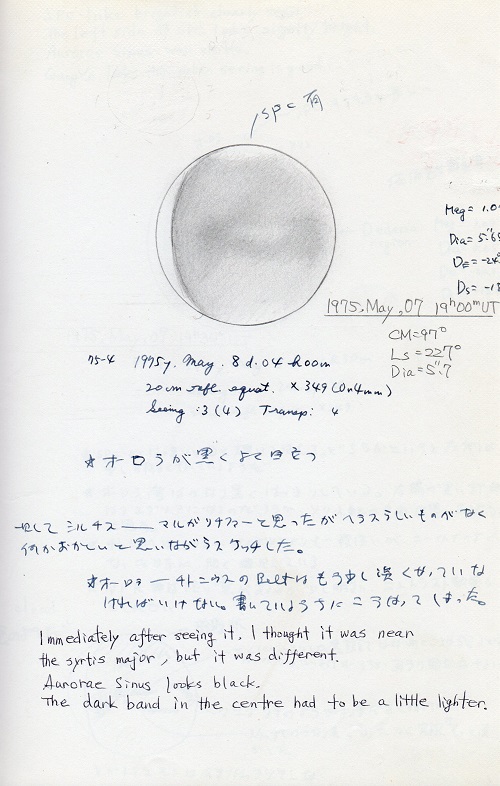 spc 有
Mag = 1.0
Dia = 5".65
DE = -24°
Ds = -18
1975. May. 07 19h00mUT
CM=97°
Ls=227°
Dia=5".7
75-4 1975y. May. 8d. 04h00m
20cm refl. equat. ×349 (Or4mm)
Seeing :3 (4) Transp: 4
*オーロラが黒くよく目立つ
思ったが ヘラスらしいものがなく
何かおかしいと思いながらスケッチした。
*オーロラーチトニウスのBeltはもう少し淡くなっていな
ければいけない。書いているうちにこうなってしまった。
Immediately after seeing it, I thought it was near
the syrtis major, but it was different.
Aurorae Sinus looks black.
The dark band in the centre had to be a little lighter.